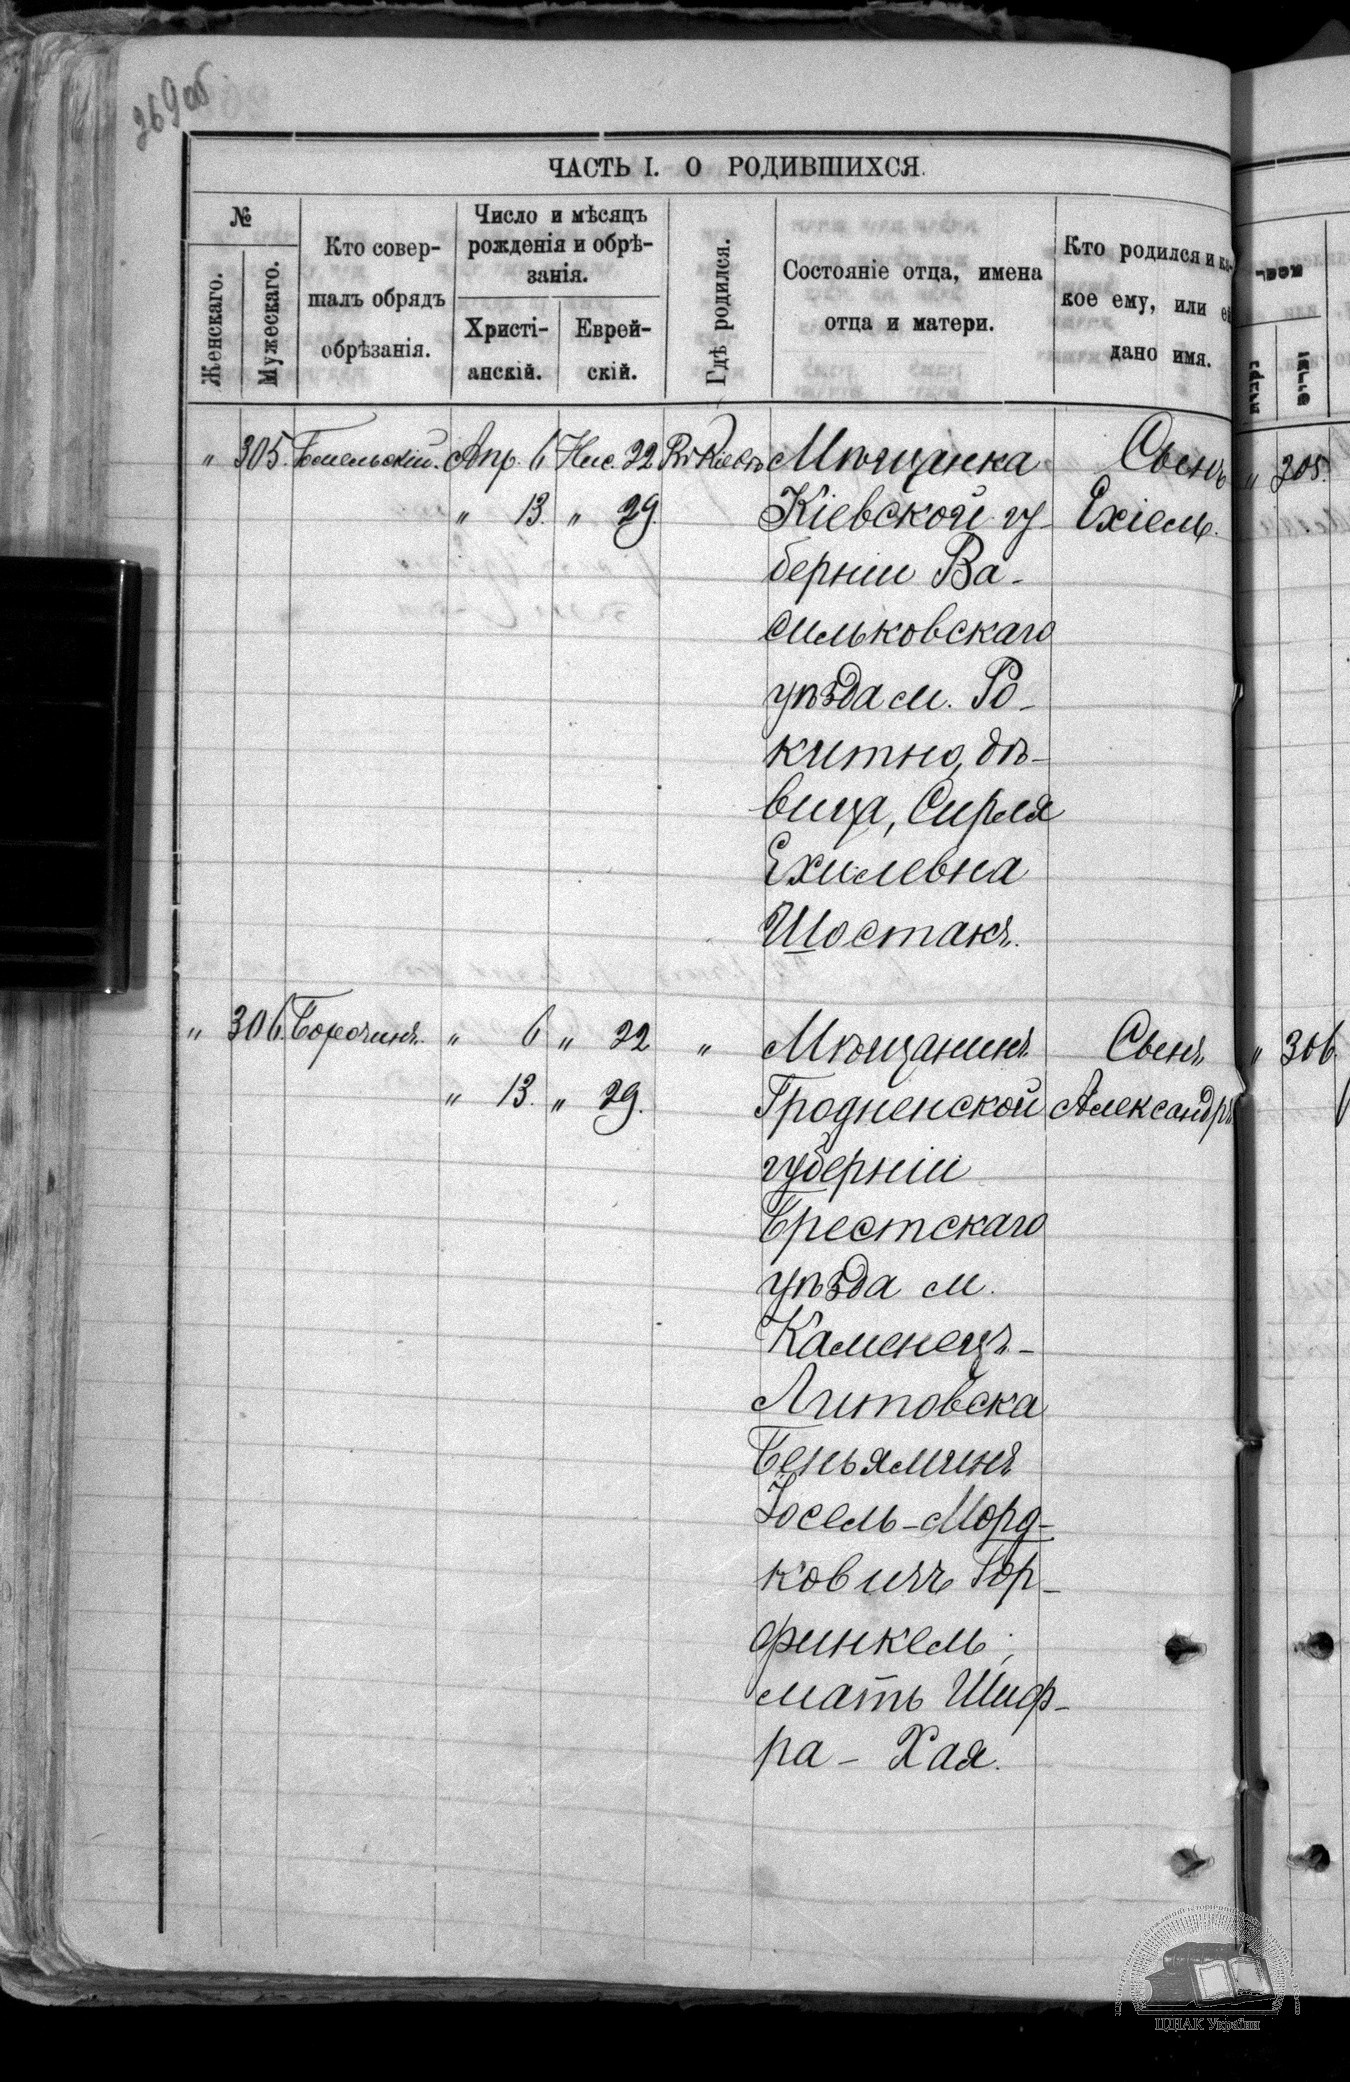 269об
ЧАСТЬ I. О РОДИВШИХСЯ.
№
Женскаго.
Мужескаго.
Кто совер-
шалъ обрядъ
обрѣзанія.
Число и мѣсяцъ
рожденія и обрѣ-
занія.
Христі-
анскій.
Еврей-
скій.
Гдѣ родился.
Состояніе отца, имена
отца и матери.
Кто родился и ка-
кое ему, или ей
дано имя.
" 305. Гомельскій. Апр. 6 Нис. 22 Мѣщанка Сынъ
" 13. " 29. Кіевской гу- Ехіель.
берніи Ва-
сильковскаго
уѣзда м. Ро-
китно, дѣ-
вица, Сирля
Ехилевна
Шостакъ.
" 306. " 6 " 22 " Мѣщанинъ Сынъ
" 13. " 29. Гродненской Александръ
губерніи
Брестскаго
уѣзда м.
Каменецъ-
Литовска
Беньяминъ
Іосель-Морд-
ковичъ Гор-
финкель;
мать Шиф-
ра - Хая.
" 305.
" 306.
ЦДІАК України